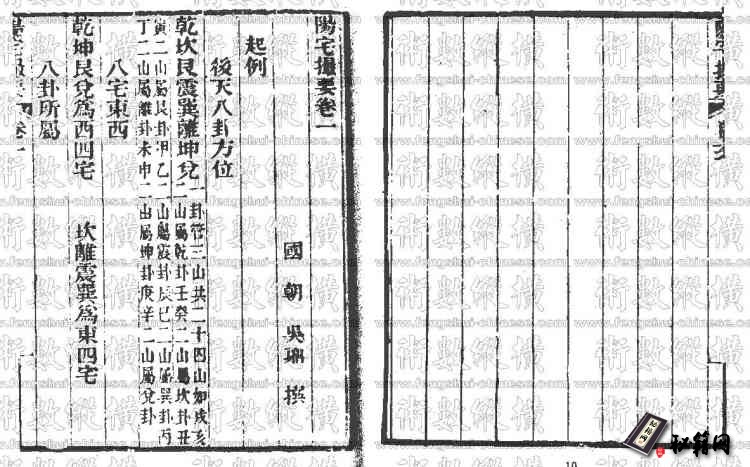 陽宅撮要卷一
國朝 吳鼒 撰
起例
後天八卦方位
乾坎艮震巽離坤兌 一卦管三山共二十四山如戌亥
二山屬乾卦壬癸二山屬坎卦丑
寅二山屬艮卦甲乙二山屬震卦辰巳二山屬巽卦丙
丁二山屬離卦未申二山屬坤卦庚辛二山屬兌卦
八宅東西
乾坤艮兌爲西四宅 坎離震巽爲東四宅
八卦所屬
術數縱橫
www.fengshui-chinese.com
秘籍网
10